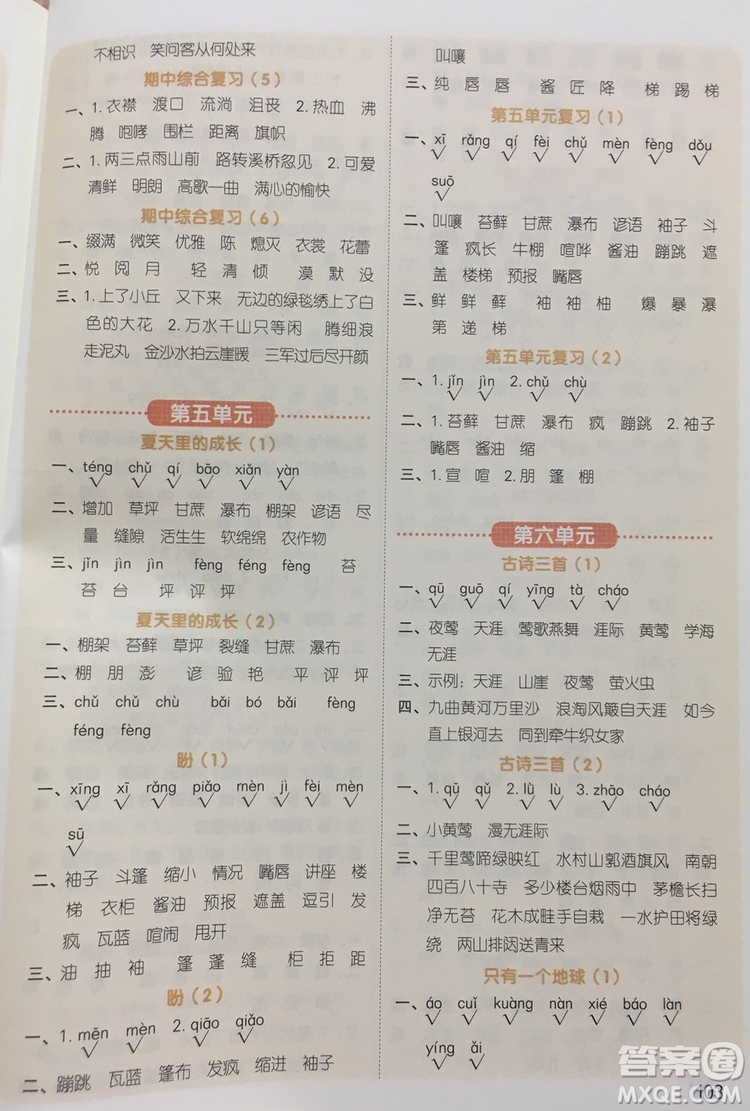 不相识 笑问客从何处来
期中综合复习（5）
一、1.衣襟 渡口 流淌 沮丧 2.热血 沸
腾 咆哮 围栏 距离 旗帜
二、1.两三点雨山前 路转溪桥忽见 2.可爱
清鲜 明朗 高歌一曲 满心的愉快
期中综合复习（6）
一、缀满 微笑 优雅 陈 熄灭 衣裳 花蕾
二、悦 阅 月 轻 清 倾 漠 默 没
三、1.上了小丘 又下来 无边的绿毯绣上了白
色的大花 2.万水千山只等闲 腾细浪
走泥丸 金沙水拍云崖暖 三军过后尽开颜
第五单元
夏天里的成长（1）
一、téng chǔ qí bāo xiǎn yàn
二、增加 草坪 甘蔗 瀑布 棚架 谚语 尽
量 缝隙 活生生 软绵绵 农作物
三、jǐn jìn jìn fèng féng fèng 苔
苔 台 坪 评 坪
夏天里的成长（2）
一、棚架 苔藓 草坪 裂缝 甘蔗 瀑布
二、棚 朋 澎 谚 验 艳 平 评 坪
三、chǔ chǔ chù bǎi bó bǎi fèng
féng fèng
盼（1）
一、xīng xī rǎng piǎo mèn jì fèi mèn
sū
二、袖子 斗篷 缩小 情况 嘴唇 讲座 楼
梯 衣柜 酱油 预报 遮盖 逗引 发
疯 瓦蓝 喧闹 甩开
三、油 抽 袖 篷 蓬 缝 柜 拒 距
盼（2）
一、1.mēn mèn 2.qiāo qiǎo
二、蹦跳 瓦蓝 篷布 发疯 缩进 袖子
叫嚷
三、纯 唇 唇 酱 匠 降 梯 踢 梯
第五单元复习（1）
一、xī rǎng qí fèi chǔ mèn fèng dǒu
suō
二、叫嚷 苔藓 甘蔗 瀑布 谚语 袖子 斗
篷 疯长 牛棚 喧哗 酱油 蹦跳 遮
盖 楼梯 预报 嘴唇
三、鲜 鲜 藓 袖 袖 柚 爆 暴 瀑
第 递 梯
第五单元复习（2）
一、1.jǐn jìn 2.chǔ chù
二、1.苔藓 甘蔗 瀑布 疯 蹦跳 2.袖子
嘴唇 酱油 缩
三、1.宣 喧 2.朋 篷 棚
第六单元
古诗三首（1）
一、qū guō qí yīng tà cháo
二、夜莺 天涯 莺歌燕舞 涯际 黄莺 学海
无涯
三、示例：天涯 山崖 夜莺 萤火虫
四、九曲黄河万里沙 浪淘风簸自天涯 如今
直上银河去 同到牵牛织女家
古诗三首（2）
一、1.qū qǔ 2.lǜ lù 3.zhāo cháo
二、小黄莺 漫无涯际
三、千里莺啼绿映红 水村山郭酒旗风 南朝
四百八十寺 多少楼台烟雨中 茅檐长扫
净无苔 花木成畦手自栽 一水护田将绿
绕 两山排闼送青来
只有一个地球（1）
一、áo cuǐ kuàng nàn xié báo làn
yíng ǎi
答案圈
MXQE.COM
103